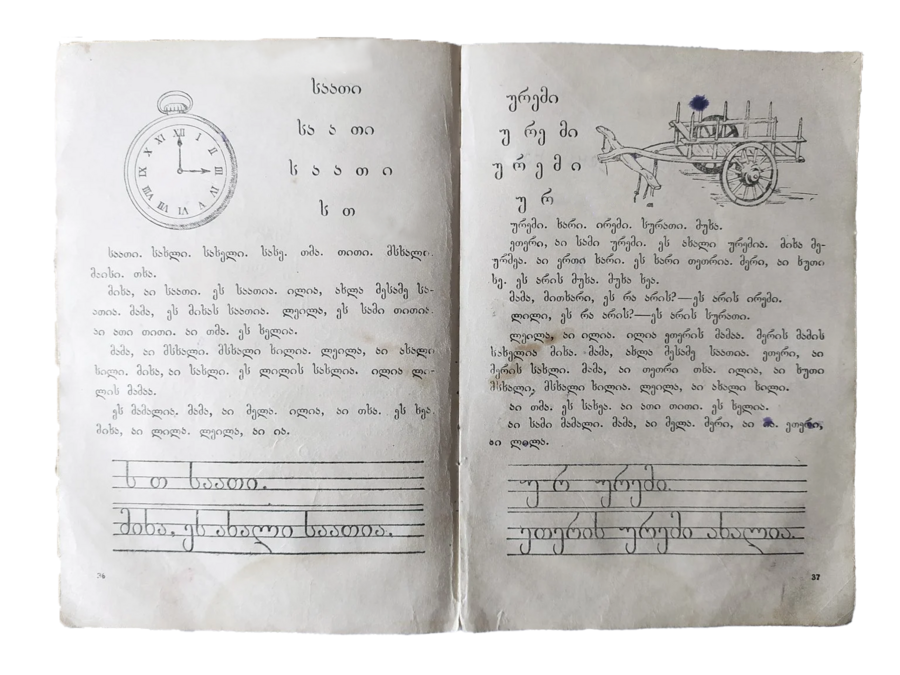 საათი
სა ა თი
ს ა ა თ ი
ს თ
XII I II III IV V VI VII VIII IX X XI
საათი. სახლი. სახელი. სახე. თმა. თითი. მსხალი.
მაისი. თხა.
მიხა, აი საათი. ეს საათია. ილია, ახლა მესამე სა-
ათია. მამა, ეს მიხას საათია. ლეილა, ეს სამი თითია.
აი ათი თითი. აი თმა. ეს ხელია.
მამა, აი მსხალი. მსხალი ხილია. ლეილა, აი ახალი
ხილი. მიხა, აი სახლი. ეს ლილის სახლია. ილია ლი-
ლის მამაა.
ეს მამალია. მამა, აი მელა. ილია, აი თხა. ეს ხეა
მიხა, აი ლილა. ლეილა, აი ია.
ს თ საათი.
მიხა, ეს ახალი საათია.
36
ურემი
უ რე მი
უ რ ე მ ი
უ რ
ურემი. ხარი. ირემი. სურათი. მუხა.
ეთერი, აი სამი ურემი. ეს ახალი ურემია. მიხა მე-
ურმეა. აი ერთი ხარი. ეს ხარი თეთრია. მერი, აი ხუთი
ხე. ეს არის მუხა. მუხა ხეა.
მამა, მითხარი, ეს რა არის?—ეს არის ირემი.
ლილი, ეს რა არის?—ეს არის სურათი.
ლეილა, აი ილია. ილია ეთერის მამაა. მერის მამის
სახელია მიხა. მამა, ახლა მესამე საათია. ეთერი, აი
მერის სახლი. მამა, აი თეთრი თხა. ილია, აი ხუთი
მსხალი, მსხალი ხილია. ლეილა, აი ახალი ხილი.
აი თმა. ეს სახეა. აი ათი თითი. ეს ხელია.
აი სამი მამალი. მამა, აი მელა. მერი, აი ია. ეთერი,
აი ლილა.
უ რ ურემი.
ეთერის ურემი ახალია.
37